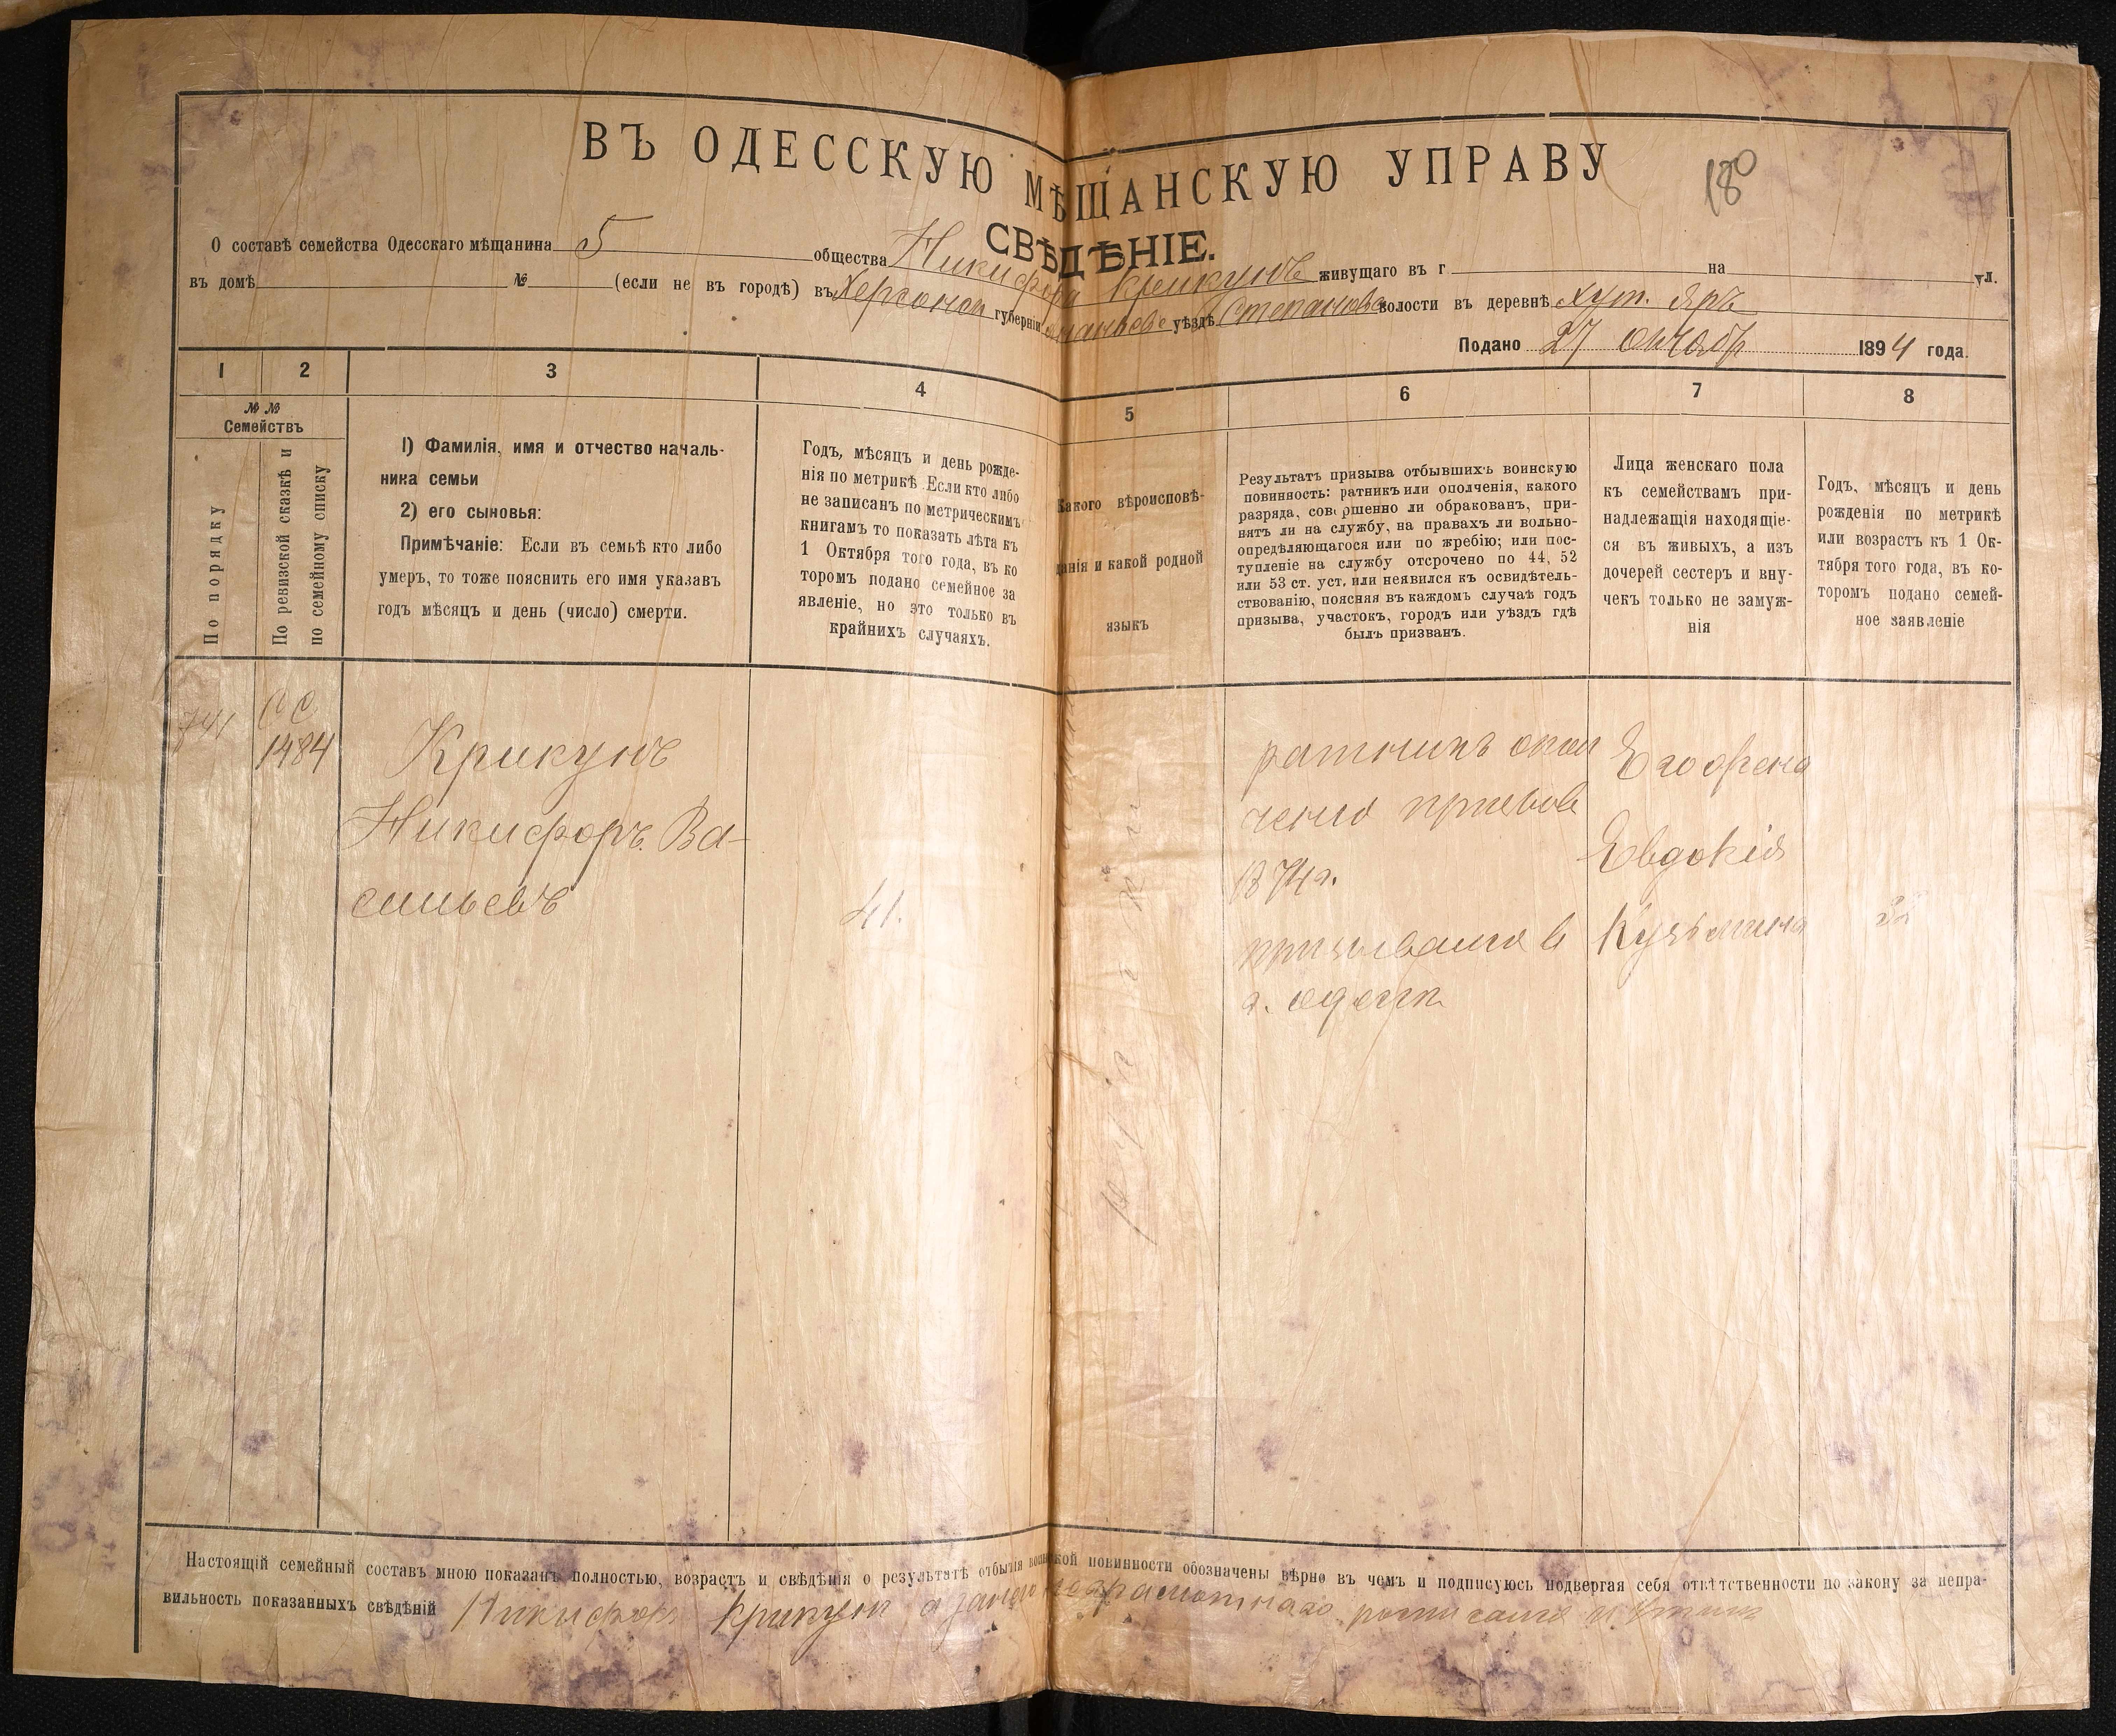 ВЪ ОДЕССКУЮ МѢЩАНСКУЮ УПРАВУ
180
СВѢДѢНІЕ.
О составѣ семейства Одесскаго мѣщанина 5 общества Никифора Крикунъ живущаго въ г на ул.
въ домѣ № (если не въ городѣ) въ Херсонск губерніи Ананьевс уѣздѣ Степановс волости въ деревнѣ хут. Яръ
Подано 27 Октябр 1894 года.
1 2 3 4 5 6 7 8
№ №
Семействъ
По порядку
По ревизской сказкѣ и
по семейному списку
1) Фамилія, имя и отчество началь-
ника семьи
2) его сыновья:
Примѣчаніе: Если въ семьѣ кто либо
умеръ, то тоже пояснить его имя указавъ
годъ мѣсяцъ и день (число) смерти.
Годъ, мѣсяцъ и день рожде-
нія по метрикѣ Если кто либо
не записанъ по метрическимъ
книгамъ то показать лѣта къ
1 Октября того года, въ ко
торомъ подано семейное за
явленіе, но это только въ
крайнихъ случаяхъ.
Какого вѣроисповѣ-
данія и какой родной
языкъ
Результатъ призыва отбывшихъ воинскую
повинность: ратникъ или ополченія, какого
разряда, совершенно ли обракованъ, при-
нятъ ли на службу, на правахъ ли вольно-
опредѣляющагося или по жребію; или пос-
тупленіе на службу отсрочено по 44, 52
или 53 ст. уст. или неявился къ освидѣтель-
ствованію, поясняя въ каждомъ случаѣ годъ
призыва, участокъ, городъ или уѣздъ гдѣ
былъ призванъ.
Лица женскаго пола
къ семействамъ при-
надлежащія находящіе-
ся въ живыхъ, а изъ
дочерей сестеръ и вну-
чекъ только не замуж-
нія
Годъ, мѣсяцъ и день
рожденія по метрикѣ
или возрастъ къ 1 Ок-
тября того года, въ ко-
торомъ подано семей-
ное заявленіе
741
1484
Крикунъ
Никифоръ Ва-
сильевъ
41.
ратникъ опол
ченія призыва
1874г.
призывался в
г. Одесск
Его жена
Евдокія
Кузьмина
Настоящій семейный составъ мною показанъ полностью, возрастъ и свѣдѣнія о результатѣ отбытія воинской повинности обозначены вѣрно въ чемъ и подписуюсь подвергая себя отвѣтственности по закону за непра-
вильность показанныхъ свѣдѣній Никифоръ Крикун а занего неграмотнаго росписался